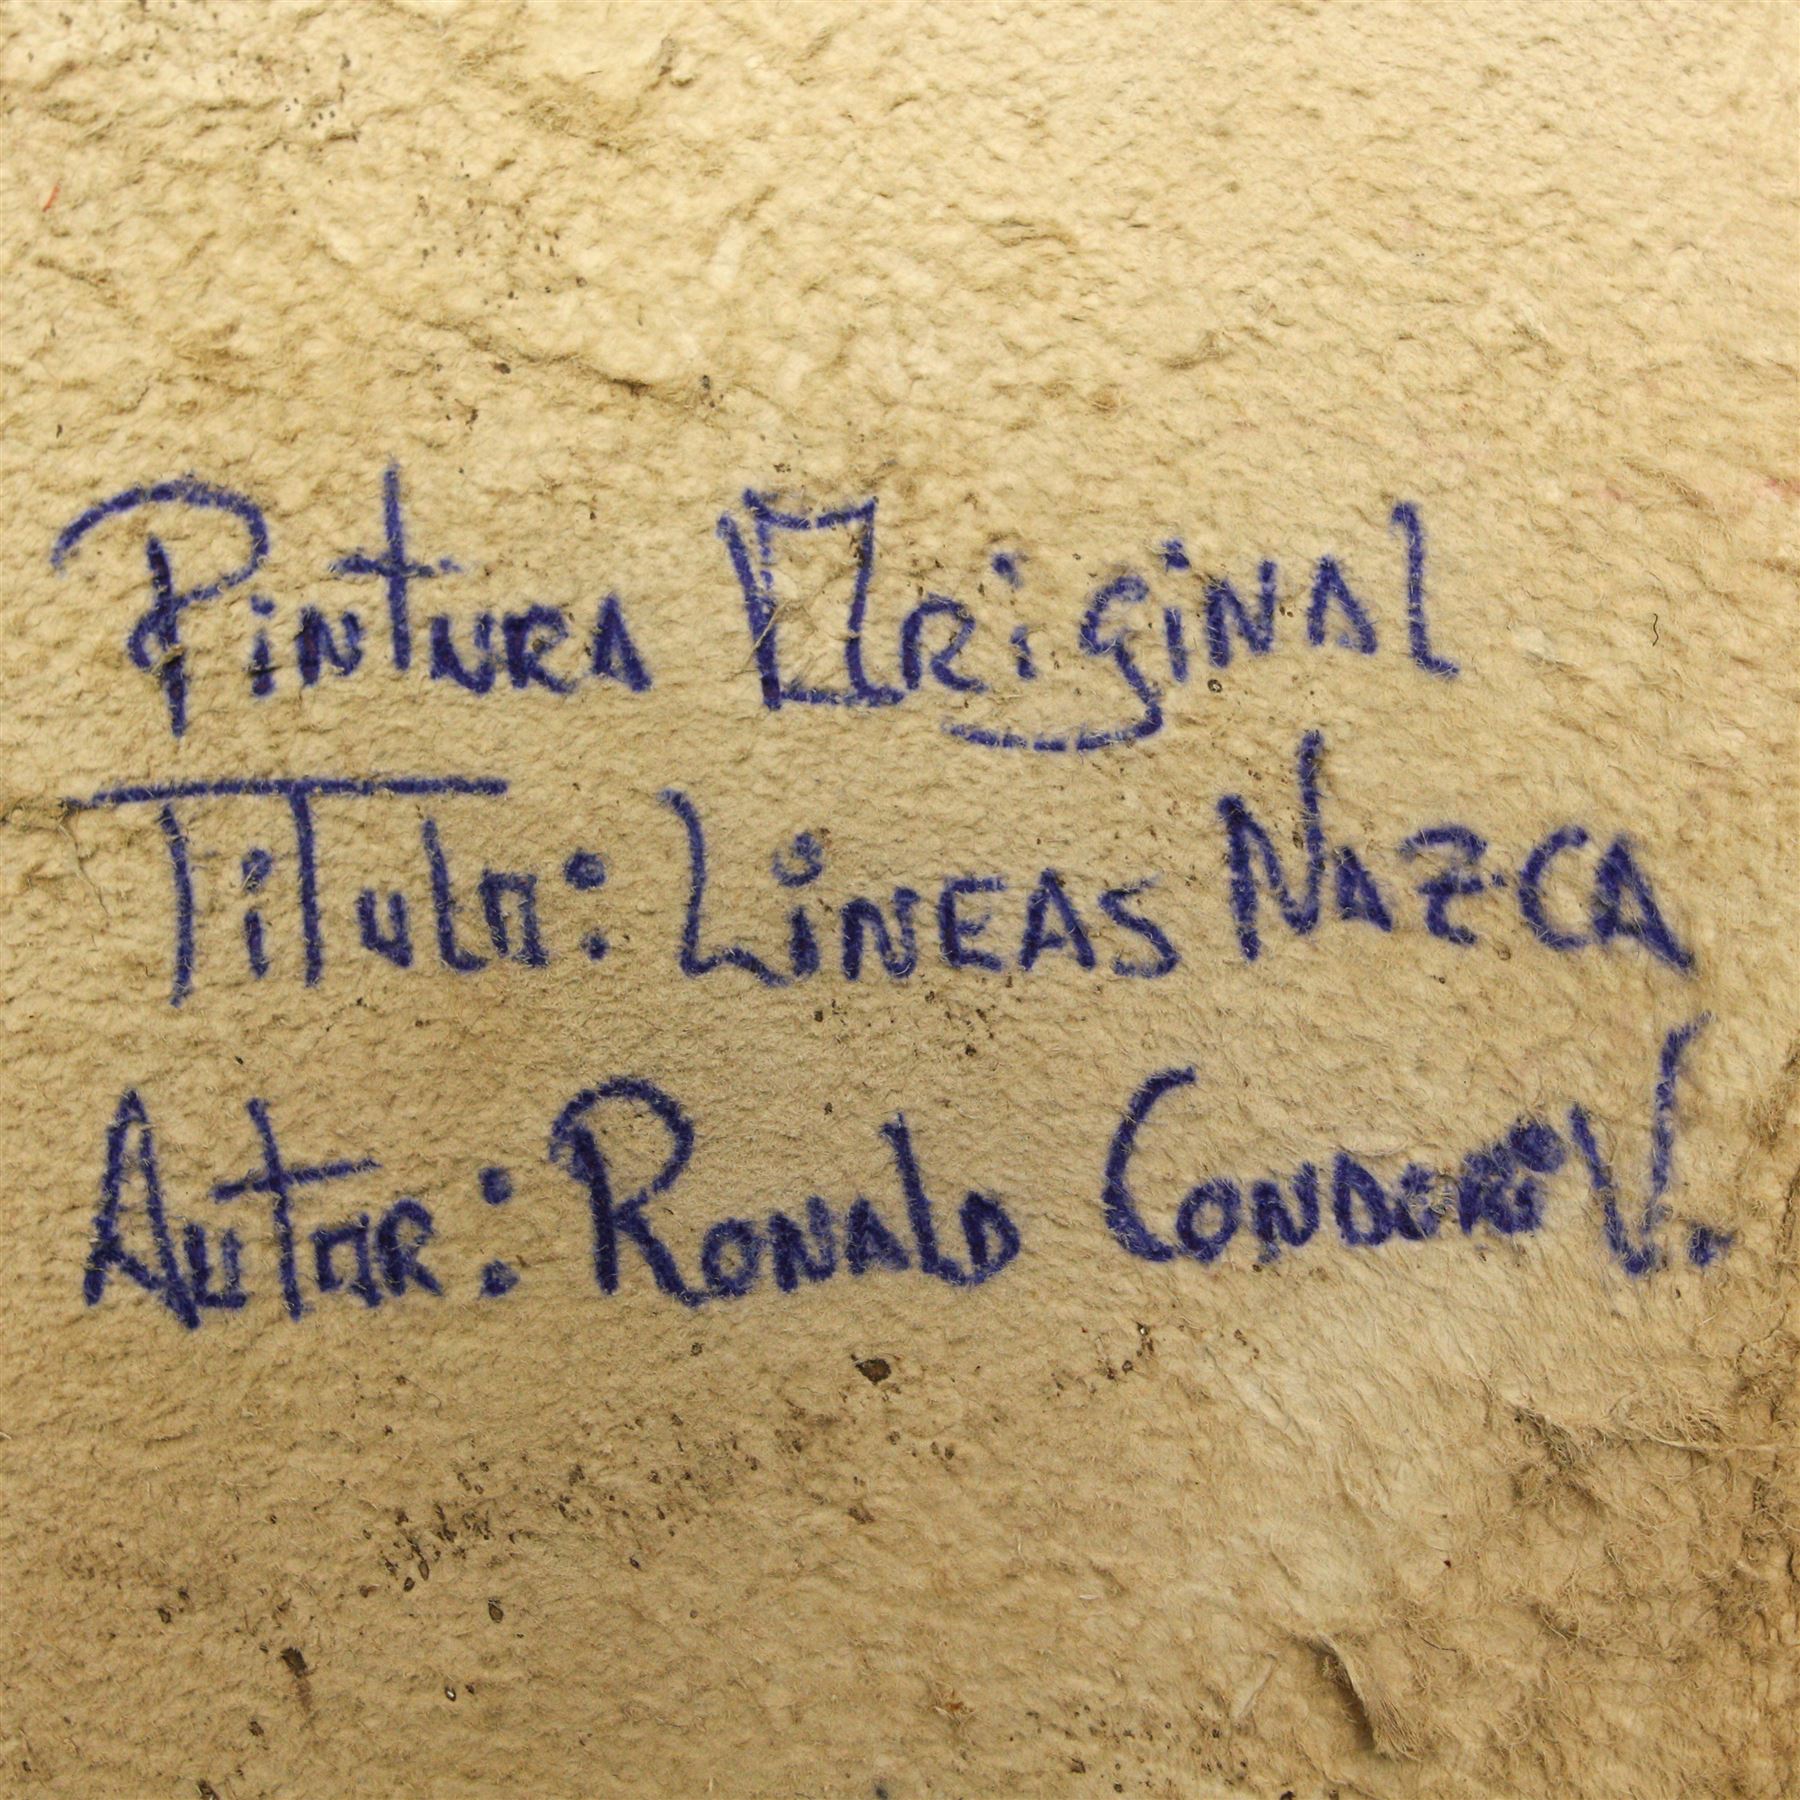 Pintura Original
Titulo: Lineas Nazca
Autor: Ronald Condori V.